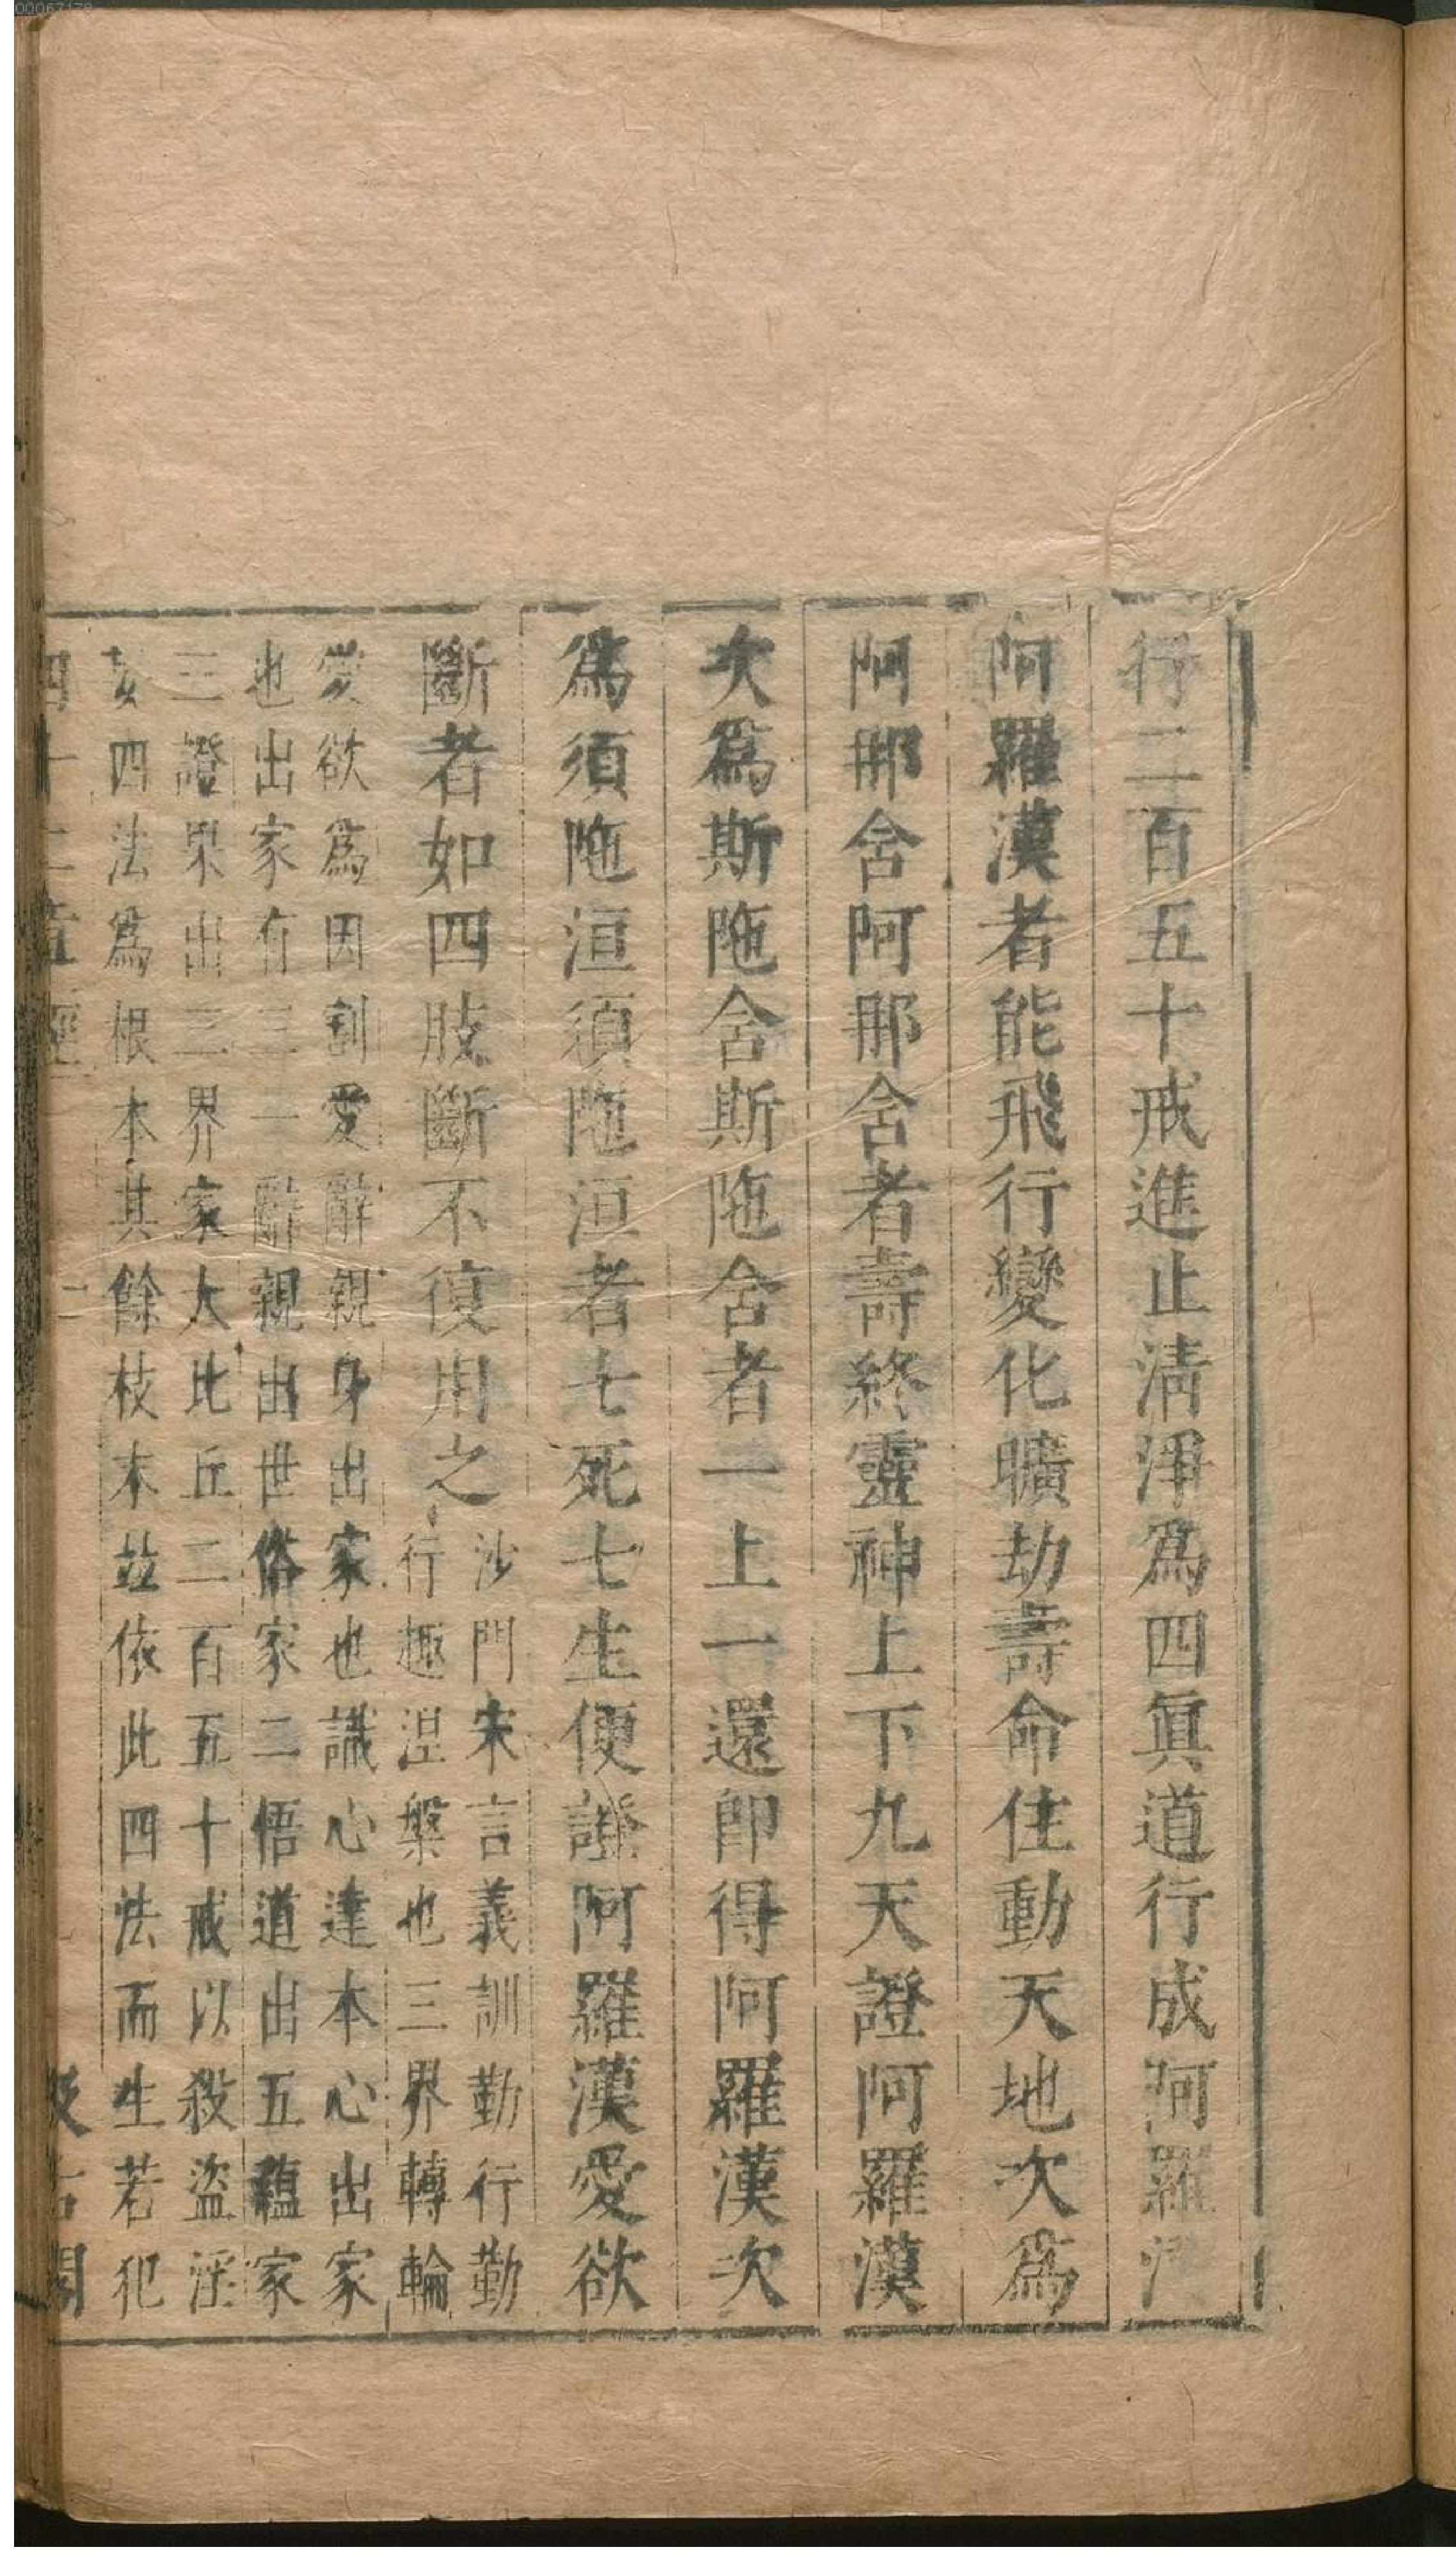 行二百五十戒進止淸淨爲四眞道行成阿羅漢
阿羅漢者能飛行變化曠劫壽命住動天地次爲
阿那舍阿那舍者壽終靈神上下九天證阿羅漢
次爲斯陁舍斯陁舍者一上一還卽得阿羅漢次
爲須陁洹須陁洹者七死七生便證阿羅漢愛欲
斷者如四肢斷不復用之
沙門宋言義訓勤行勤
行趣涅槃也三界轉輪
愛欲爲因割愛辭親身出家也識心達本心出家
也出家有三一辭親出世俗家二悟道出五蘊家
三證果出三界家大比丘二百五十戒以殺盜淫
妄四法爲根本其餘枝末竝依此四法而生若犯
四十二章經
二
汲古閣
00067178